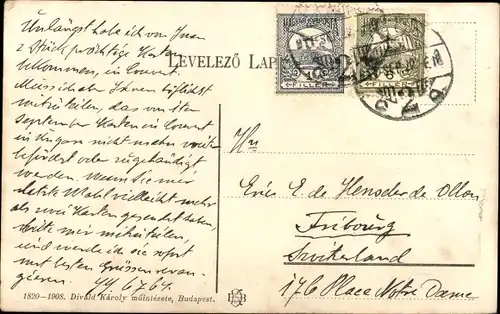 Unlängst habe ich von Ihnen
2 Stück prächtige Karten
bekommen, in Couvert.
Muss ich aber Ihnen höflichst
mitteilen, das von
September Karten in Couvert
in Ungarn nicht mehr weiter
befördert oder zugehändigt
werden. Wenn Sie mir
letzte Mahl vielleicht mehr
als zwei Karten gesendet haben,
bitte mir mitteilen,
und werde ich sie sofort
mit besten Grüssen revan-
gieren.
LEVELEZŐ LAP
MAGYAR KIR. POSTA
FILLÉR
FILLÉR
E. de Henseler de Ollon
Fribourg
Switzerland
176 Place Notre Dame
1820-1908. Divald Károly műintézete, Budapest.